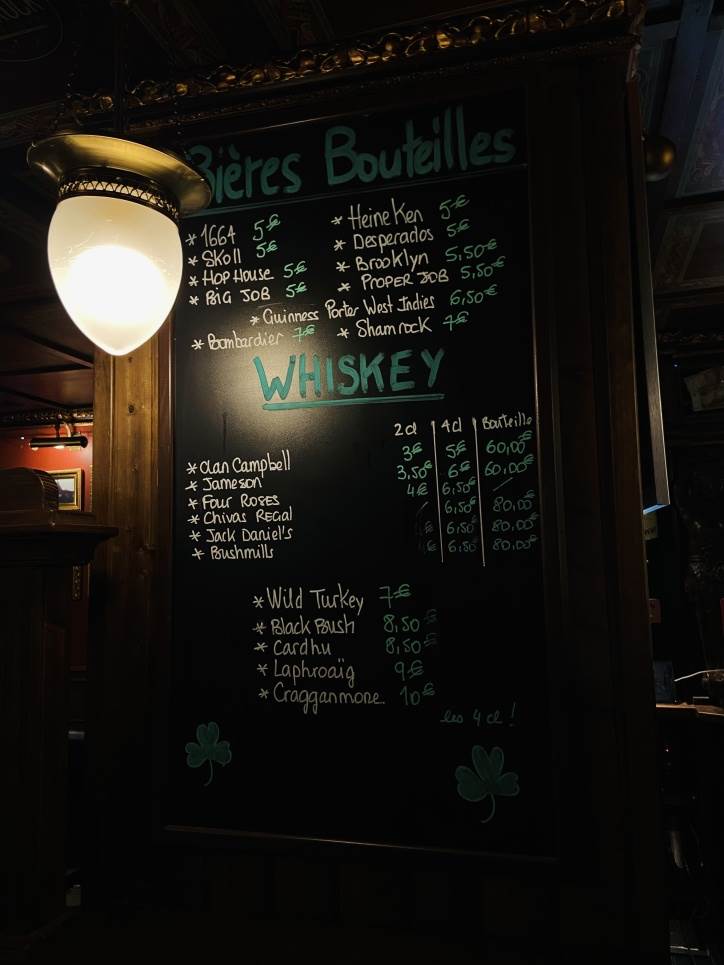 Bières Bouteilles
* 1664 5€
* Skoll 5€
* Hop House 5€
* BiG JOB 5€
* HeineKen 5€
* Desperados 5€
* Brooklyn 5,50€
* PROPER JOB 5,50€
* Guinness Porter West Indies 6,50€
* Bombardier 7€
* Shamrock 7€
WHISKEY
2cl 4cl Bouteille
* Clan Campbell 3€ 5€ 60,00€
* Jameson 3,50€ 6€ 60,00€
* Four Roses 4€ 6,50€
* Chivas REGal 6,50€ 80,00€
* Jack Daniel's 6,50€ 80,00€
* Bushmills € 6,50€ 80,00€
* Wild Turkey 7€
* Black Bush 8,50€
* Cardhu 8,50€
* Laphroaïg 9€
* Cragganmore 10€
les 4 cl !